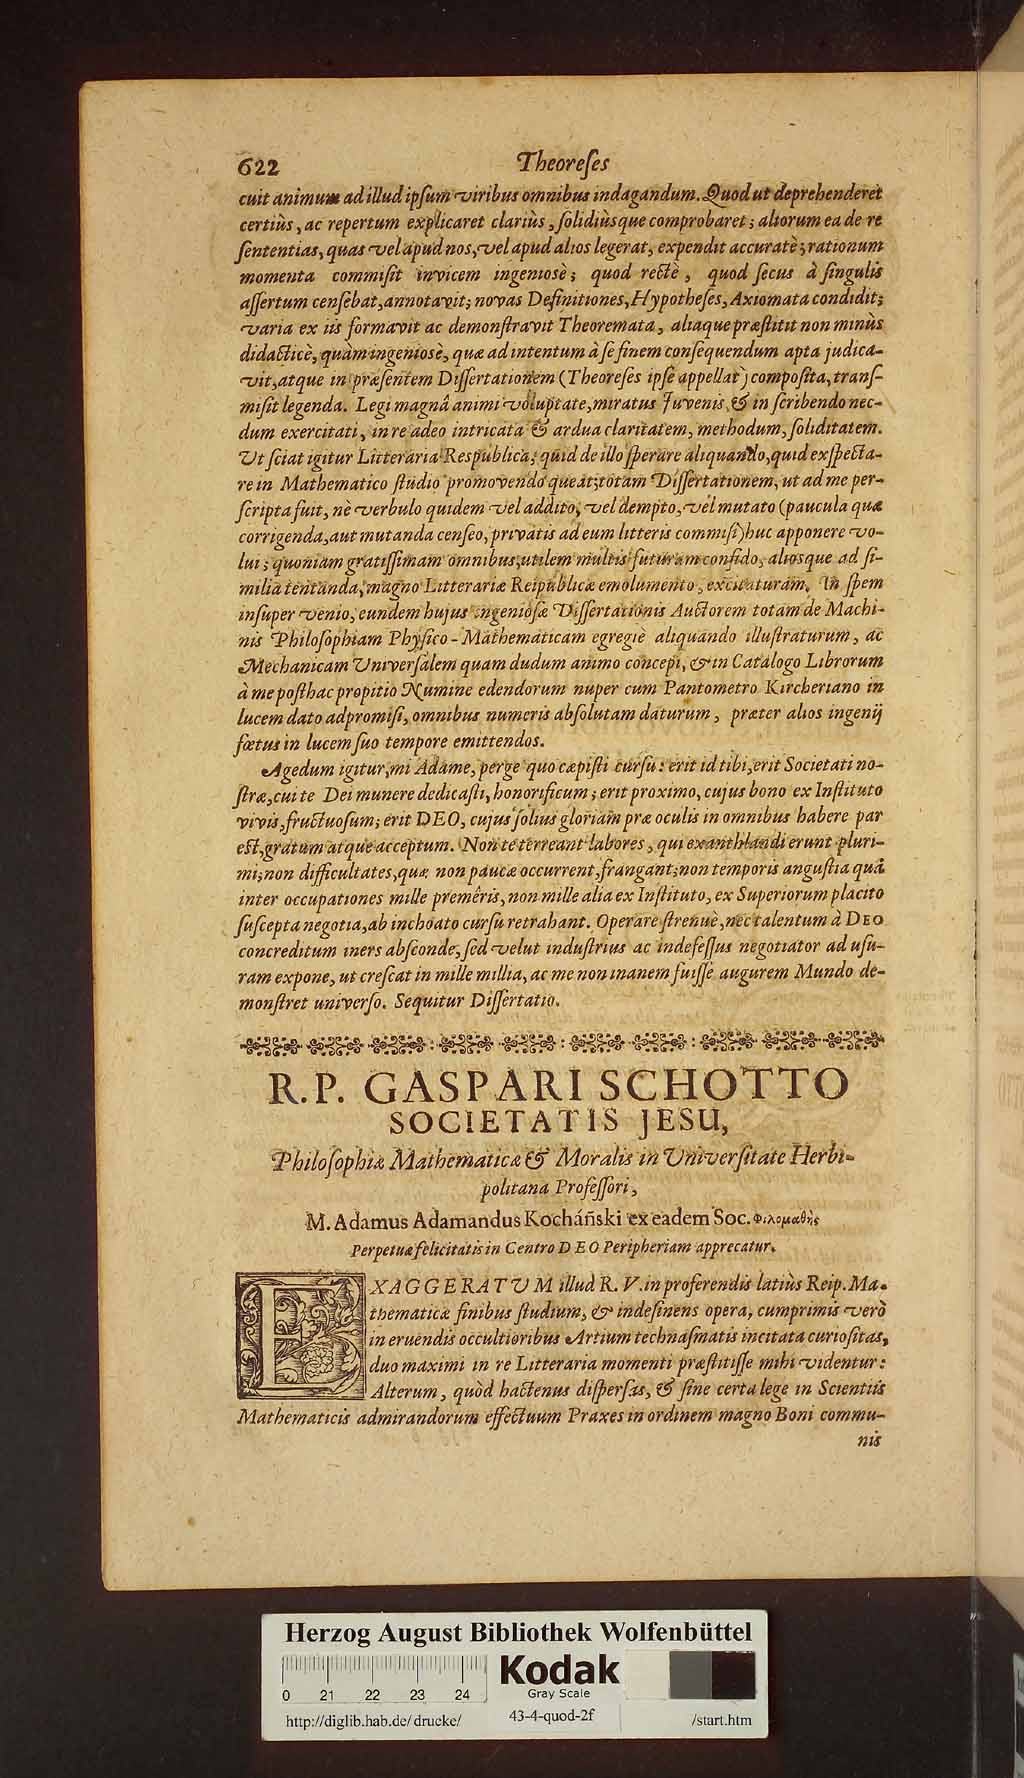 622 Theoreſes
cuit animum ad illud ipſum viribus omnibus indagandum. Quod ut deprehenderet
certiùs, ac repertum explicaret clariùs, ſolidiùsque comprobaret; aliorum ea de re
ſententias, quas vel apud nos, vel apud alios legerat, expendit accuratè; rationum
momenta commiſit invicem ingenioſè; quod rectè, quod ſecus à ſingulis
aſſertum cenſebat, annotavit; novas Definitiones, Hypotheſes, Axiomata condidit;
varia ex iis formavit ac demonſtravit Theoremata, aliaque præſtitit non minùs
didacticè, quàm ingenioſè, quæ ad intentum à ſe finem conſequendum apta judica-
vit, atque in præſentem Diſſertationem (Theoreſes ipſe appellat) compoſita, tranſ-
miſit legenda. Legi magnâ animi voluptate, miratus Juvenis, & in ſcribendo nec-
dum exercitati, in re adeo intricata & ardua claritatem, methodum, ſoliditatem.
Ut ſciat igitur Litteraria Respublica, quid de illo ſperare aliquando, quid exſpecta-
re in Mathematico ſtudio promovendo queat; totam Diſſertationem, ut ad me per-
ſcripta fuit, nè verbulo quidem vel addito, vel dempto, vel mutato (paucula quæ
corrigenda, aut mutanda cenſeo, privatis ad eum litteris commiſi) huc apponere vo-
lui; quoniam gratiſſimam omnibus, utilem multis futuram confido, aliosque ad ſi-
milia tentanda, magno Litterariæ Reipublicæ emolumento, excitaturam. In ſpem
inſuper venio, eundem hujus ingenioſæ Diſſertationis Auctorem totam de Machi-
nis Philoſophiam Phyſico-Mathematicam egregiè aliquando illuſtraturum, ac
Mechanicam Univerſalem quam dudum animo concepi, & in Catalogo Librorum
à me poſthac propitio Numine edendorum nuper cum Pantometro Kircheriano in
lucem dato adpromiſi, omnibus numeris abſolutam daturum, præter alios ingenij
fœtus in lucem ſuo tempore emittendos.
Agedum igitur, mi Adame, perge quo cæpiſti curſu: erit id tibi, erit Societati no-
ſtræ, cui te Dei munere dedicaſti, honorificum; erit proximo, cujus bono ex Inſtituto
vivis, fructuoſum; erit DEO, cujus ſolius gloriam præ oculis in omnibus habere par
eſt, gratum atque acceptum. Non te terreant labores, qui exanthlandi erunt pluri-
mi; non difficultates, quæ non paucæ occurrent, frangant; non temporis anguſtia quâ
inter occupationes mille premêris, non mille alia ex Inſtituto, ex Superiorum placito
ſuſcepta negotia, ab inchoato curſu retrahant. Operare ſtrenuè, nec talentum à DEO
concreditum iners abſconde, ſed velut induſtrius ac indefeſſus negotiator ad uſu-
ram expone, ut creſcat in mille millia, ac me non inanem fuiſſe augurem Mundo de-
monſtret univerſo. Sequitur Diſſertatio.
R.P. GASPARI SCHOTTO
SOCIETATIS JESU,
Philoſophiæ Mathematicæ & Moralis in Univerſitate Herbi-
politana Profeſſori,
M. Adamus Adamandus Kocháński ex eadem Soc. Φιλομαθὴς
Perpetuæ felicitatis in Centro DEO Peripheriam apprecatur.
EXAGGERATUM illud R. V. in proferendis latiùs Reip. Ma-
thematicæ finibus ſtudium, & indefinens opera, cumprimis verò
in eruendis occultioribus Artium technaſmatis incitata curioſitas,
duo maximi in re Litteraria momenti præſtitiſſe mihi videntur:
Alterum, quòd hactenus diſperſas, & ſine certa lege in Scientiis
Mathematicis admirandorum effectuum Praxes in ordinem magno Boni commu-
nis
Herzog August Bibliothek Wolfenbüttel
0 21 22 23 24
Kodak
Gray Scale
http://diglib.hab.de/drucke/ 43-4-quod-2f /start.htm